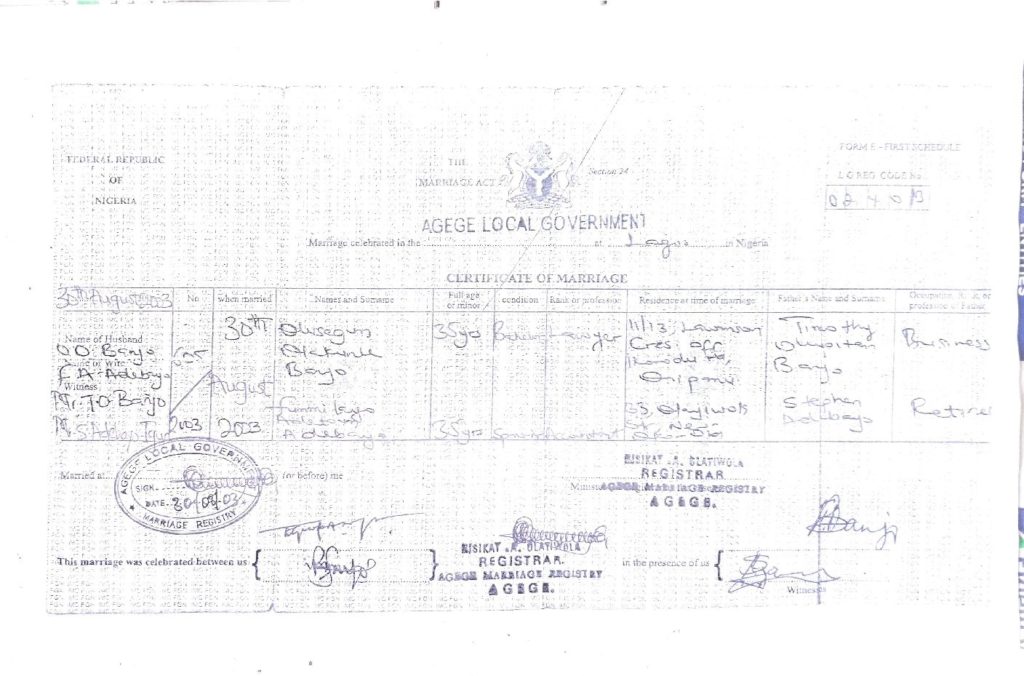 FEDERAL REPUBLIC
OF
NIGERIA
THE
MARRIAGE ACT
Section 24
FORM E - FIRST SCHEDULE
L G REG CODE No
AGEGE LOCAL GOVERNMENT
Marriage celebrated in the at Lagos in Nigeria
CERTIFICATE OF MARRIAGE
30th August 2003
No
when married
Names and Surname
Full age or minor
condition
Rank or profession
Residence at time of marriage
Father's Name and Surname
Occupation, Rank, or profession of Father
Name of Husband
O O Banjo
Name of Wife
F A Adebayo
Witness
Mr. T O Banjo
2003
30TH
August
2003
Olusegun
Olakunle
Banjo
35yrs
Bachelor
Lawyer
11/13, Lawanson
Cres. off
Ikorodu Rd,
Onipanu
Timothy
Banjo
Business
Adebayo
35yrs
Spinster
Accountant
33,
St. New
Stephen
Adebayo
Retire
AGEGE LOCAL GOVERNMENT
SIGN
DATE 30/08/03
MARRIAGE REGISTRY
Married at (or before) me
RISIKAT .A. OLATIWOLA
REGISTRAR
AGEGE MARRIAGE REGISTRY
AGEGE.
This marriage was celebrated between us
RISIKAT .A. OLATIWOLA
REGISTRAR
AGEGE MARRIAGE REGISTRY
AGEGE.
in the presence of us
Witnesses